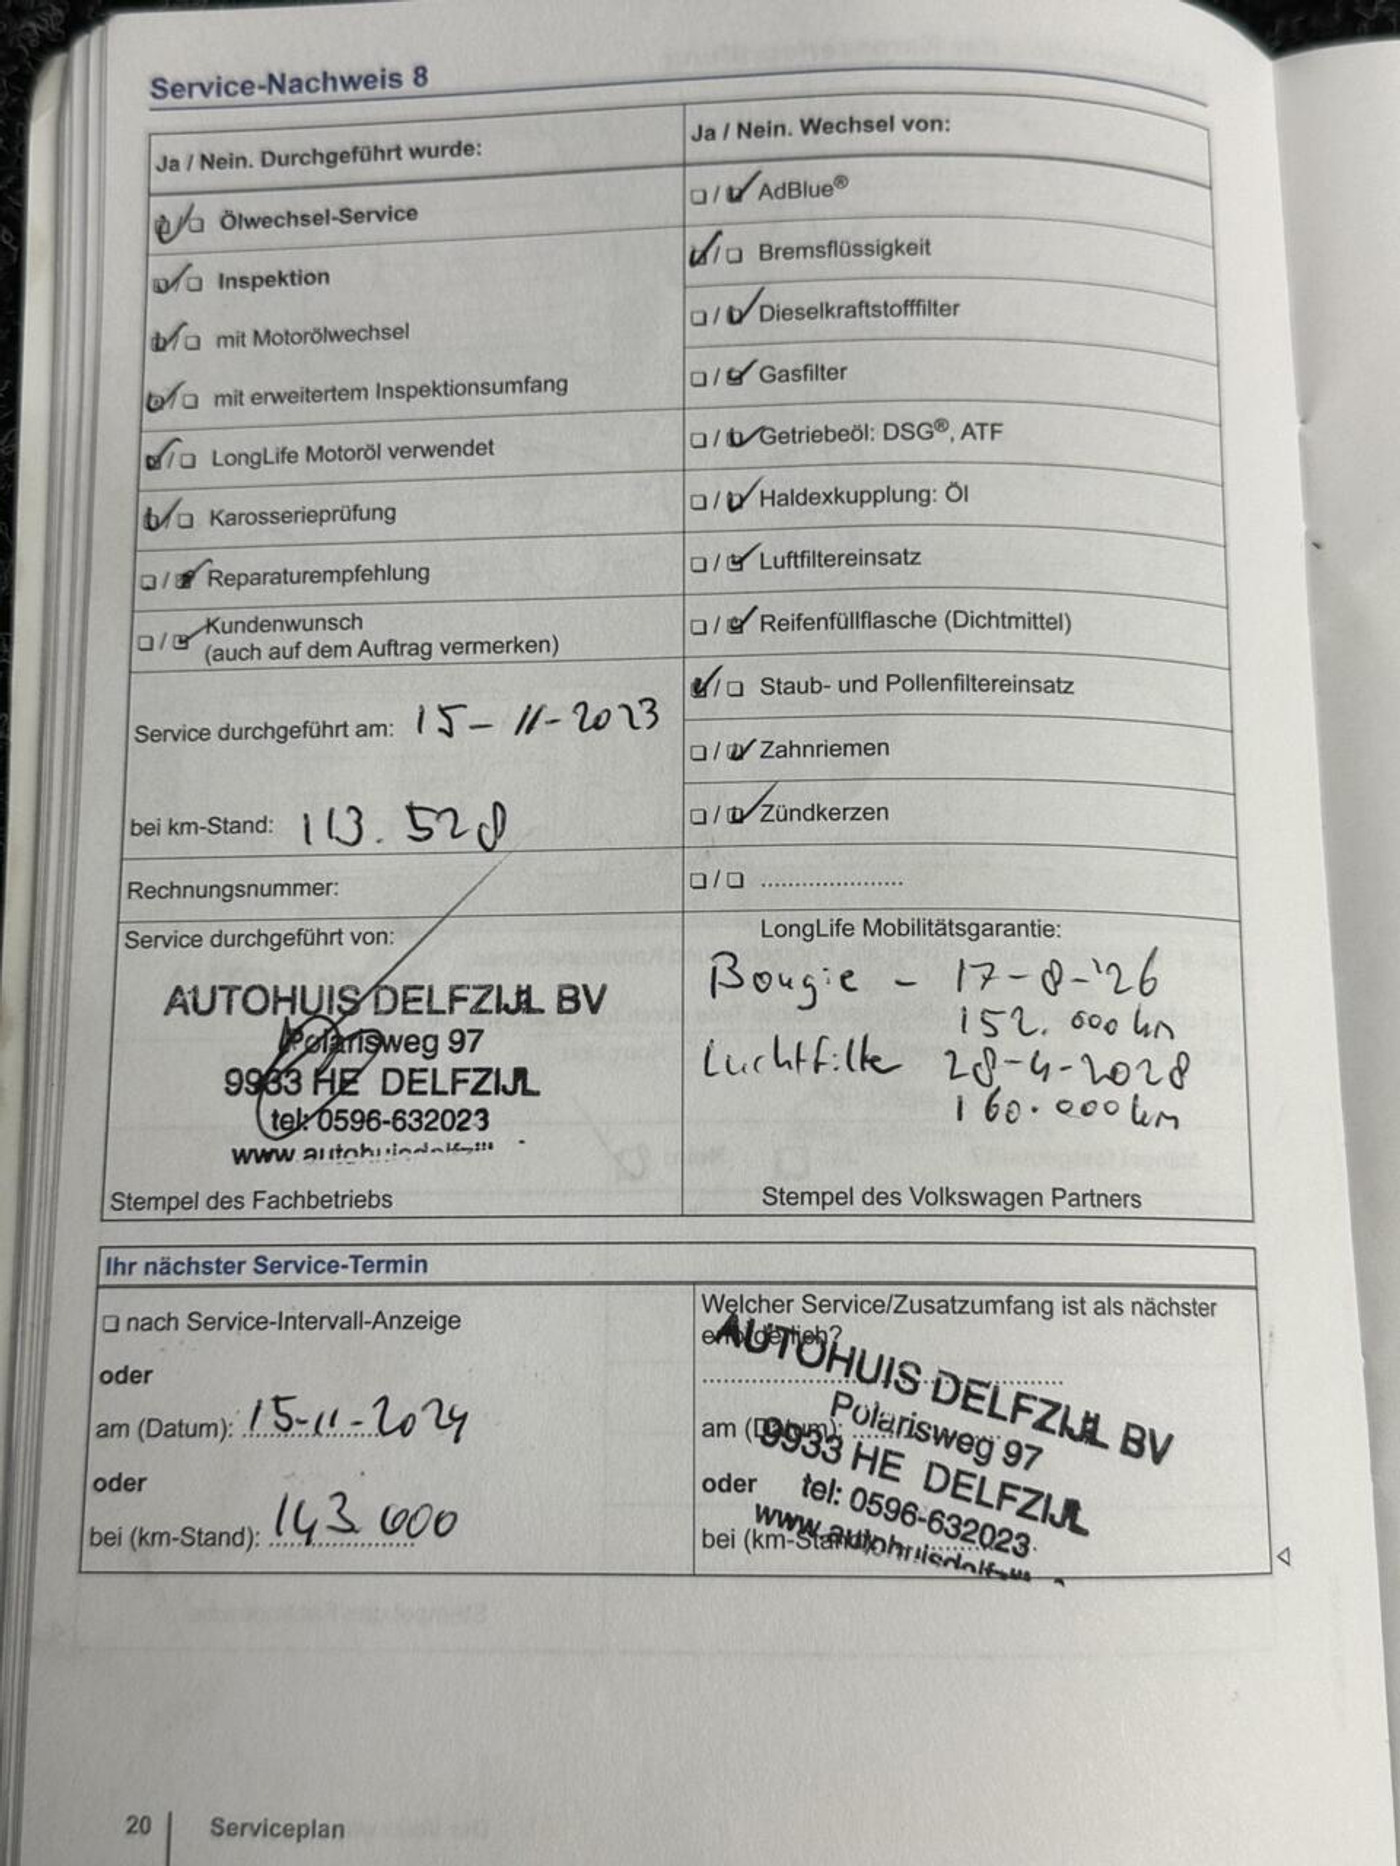 Service-Nachweis 8
Ja / Nein. Durchgeführt wurde:
Ölwechsel-Service
Inspektion
mit Motorölwechsel
mit erweitertem Inspektionsumfang
LongLife Motoröl verwendet
Karosserieprüfung
Reparaturempfehlung
Kundenwunsch
(auch auf dem Auftrag vermerken)
Service durchgeführt am: 15-11-2023
bei km-Stand: 113.528
Rechnungsnummer:
Service durchgeführt von:
AUTOHUIS DELFZIJL BV
Polarisweg 97
9933 HE DELFZIJL
tel: 0596-632023
Stempel des Fachbetriebs
Ja / Nein. Wechsel von:
AdBlue®
Bremsflüssigkeit
Dieselkraftstofffilter
Gasfilter
Getriebeöl: DSG®, ATF
Haldexkupplung: Öl
Luftfiltereinsatz
Reifenfüllflasche (Dichtmittel)
Staub- und Pollenfiltereinsatz
Zahnriemen
Zündkerzen
LongLife Mobilitätsgarantie:
Bougie - 17-8-'26
152.000 km
Luchtfilte 28-4-2028
160.000 km
Stempel des Volkswagen Partners
Ihr nächster Service-Termin
nach Service-Intervall-Anzeige
oder
am (Datum): 15-11-2024
oder
bei (km-Stand): 143.000
Welcher Service/Zusatzumfang ist als nächster
erforderlich?
AUTOHUIS DELFZIJL BV
Polarisweg 97
am (Datum):
9933 HE DELFZIJL
oder
tel: 0596-632023
bei (km-Stand):
20 Serviceplan